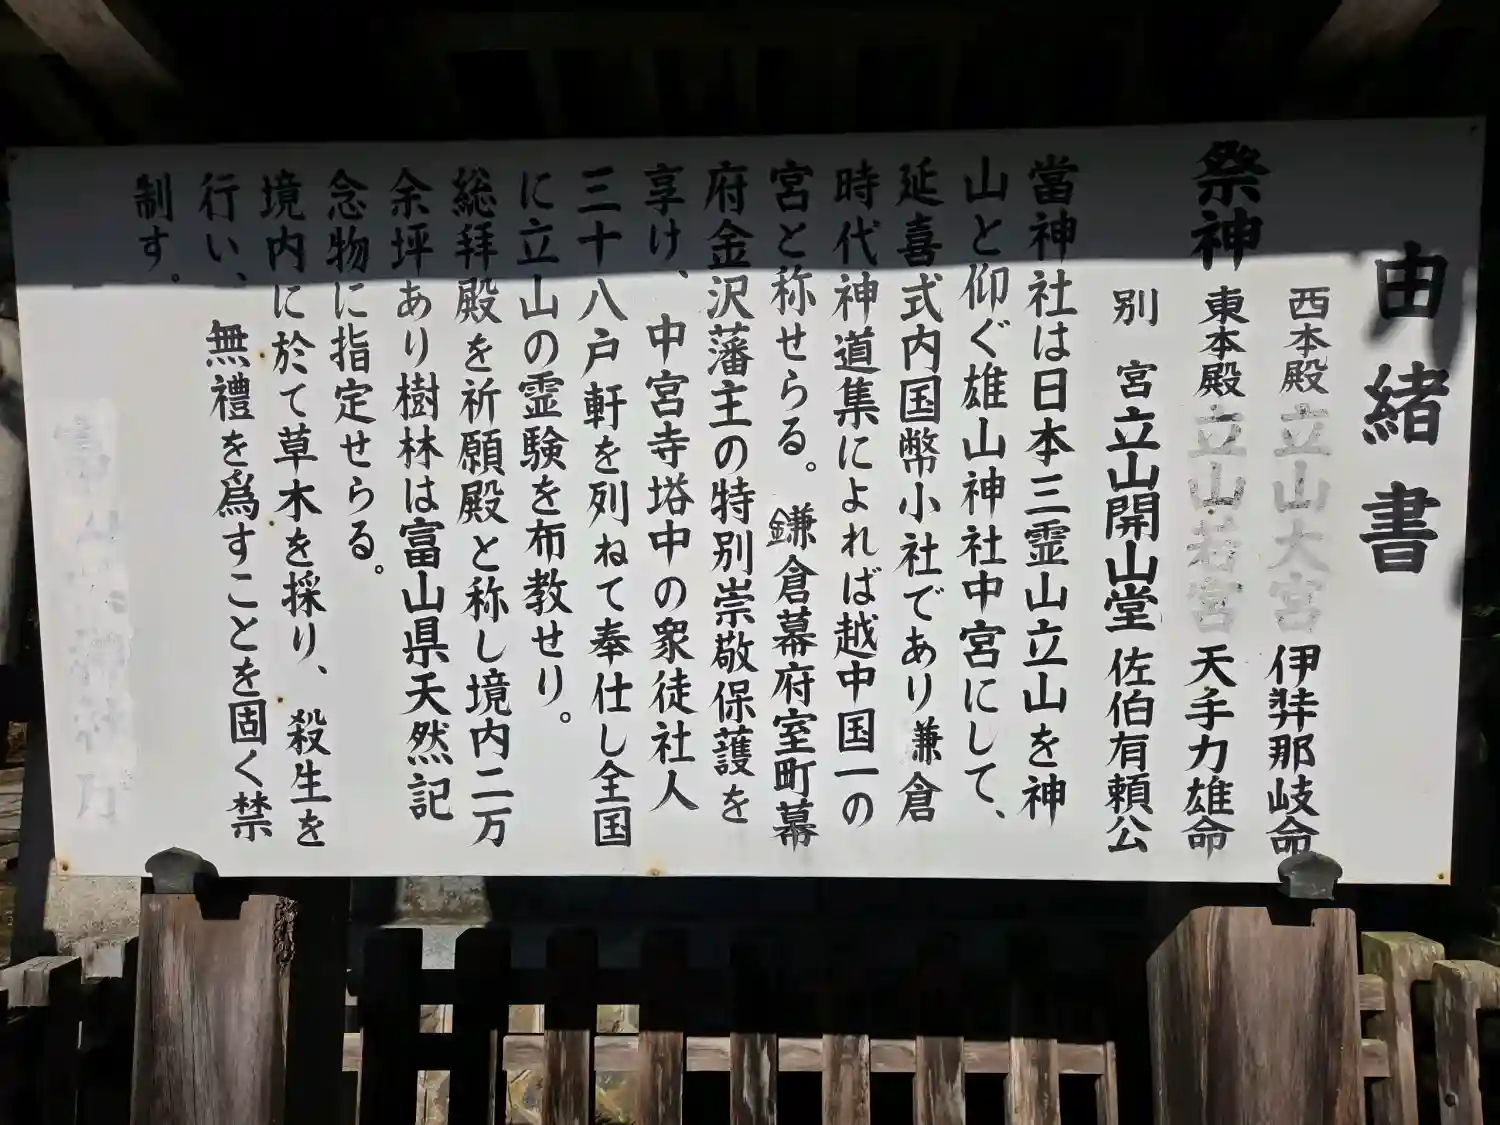 由緒書
祭神
西本殿 立山大宮 伊弉那岐命
東本殿 立山若宮 天手力雄命
別宮 立山開山堂 佐伯有頼公
當神社は日本三霊山立山を神
山と仰ぐ雄山神社中宮にして、
延喜式内国幣小社であり鎌倉
時代神道集によれば越中国一の
宮と称せらる。鎌倉幕府室町幕
府金沢藩主の特別崇敬保護を
享け、中宮寺塔中の衆徒社人
三十八戸軒を列ねて奉仕し全国
に立山の霊験を布教せり。
総拜殿を祈願殿と称し境内二万
余坪あり樹林は富山県天然記
念物に指定せらる。
境内に於て草木を採り、殺生を
行い、無禮を爲すことを固く禁
制す。